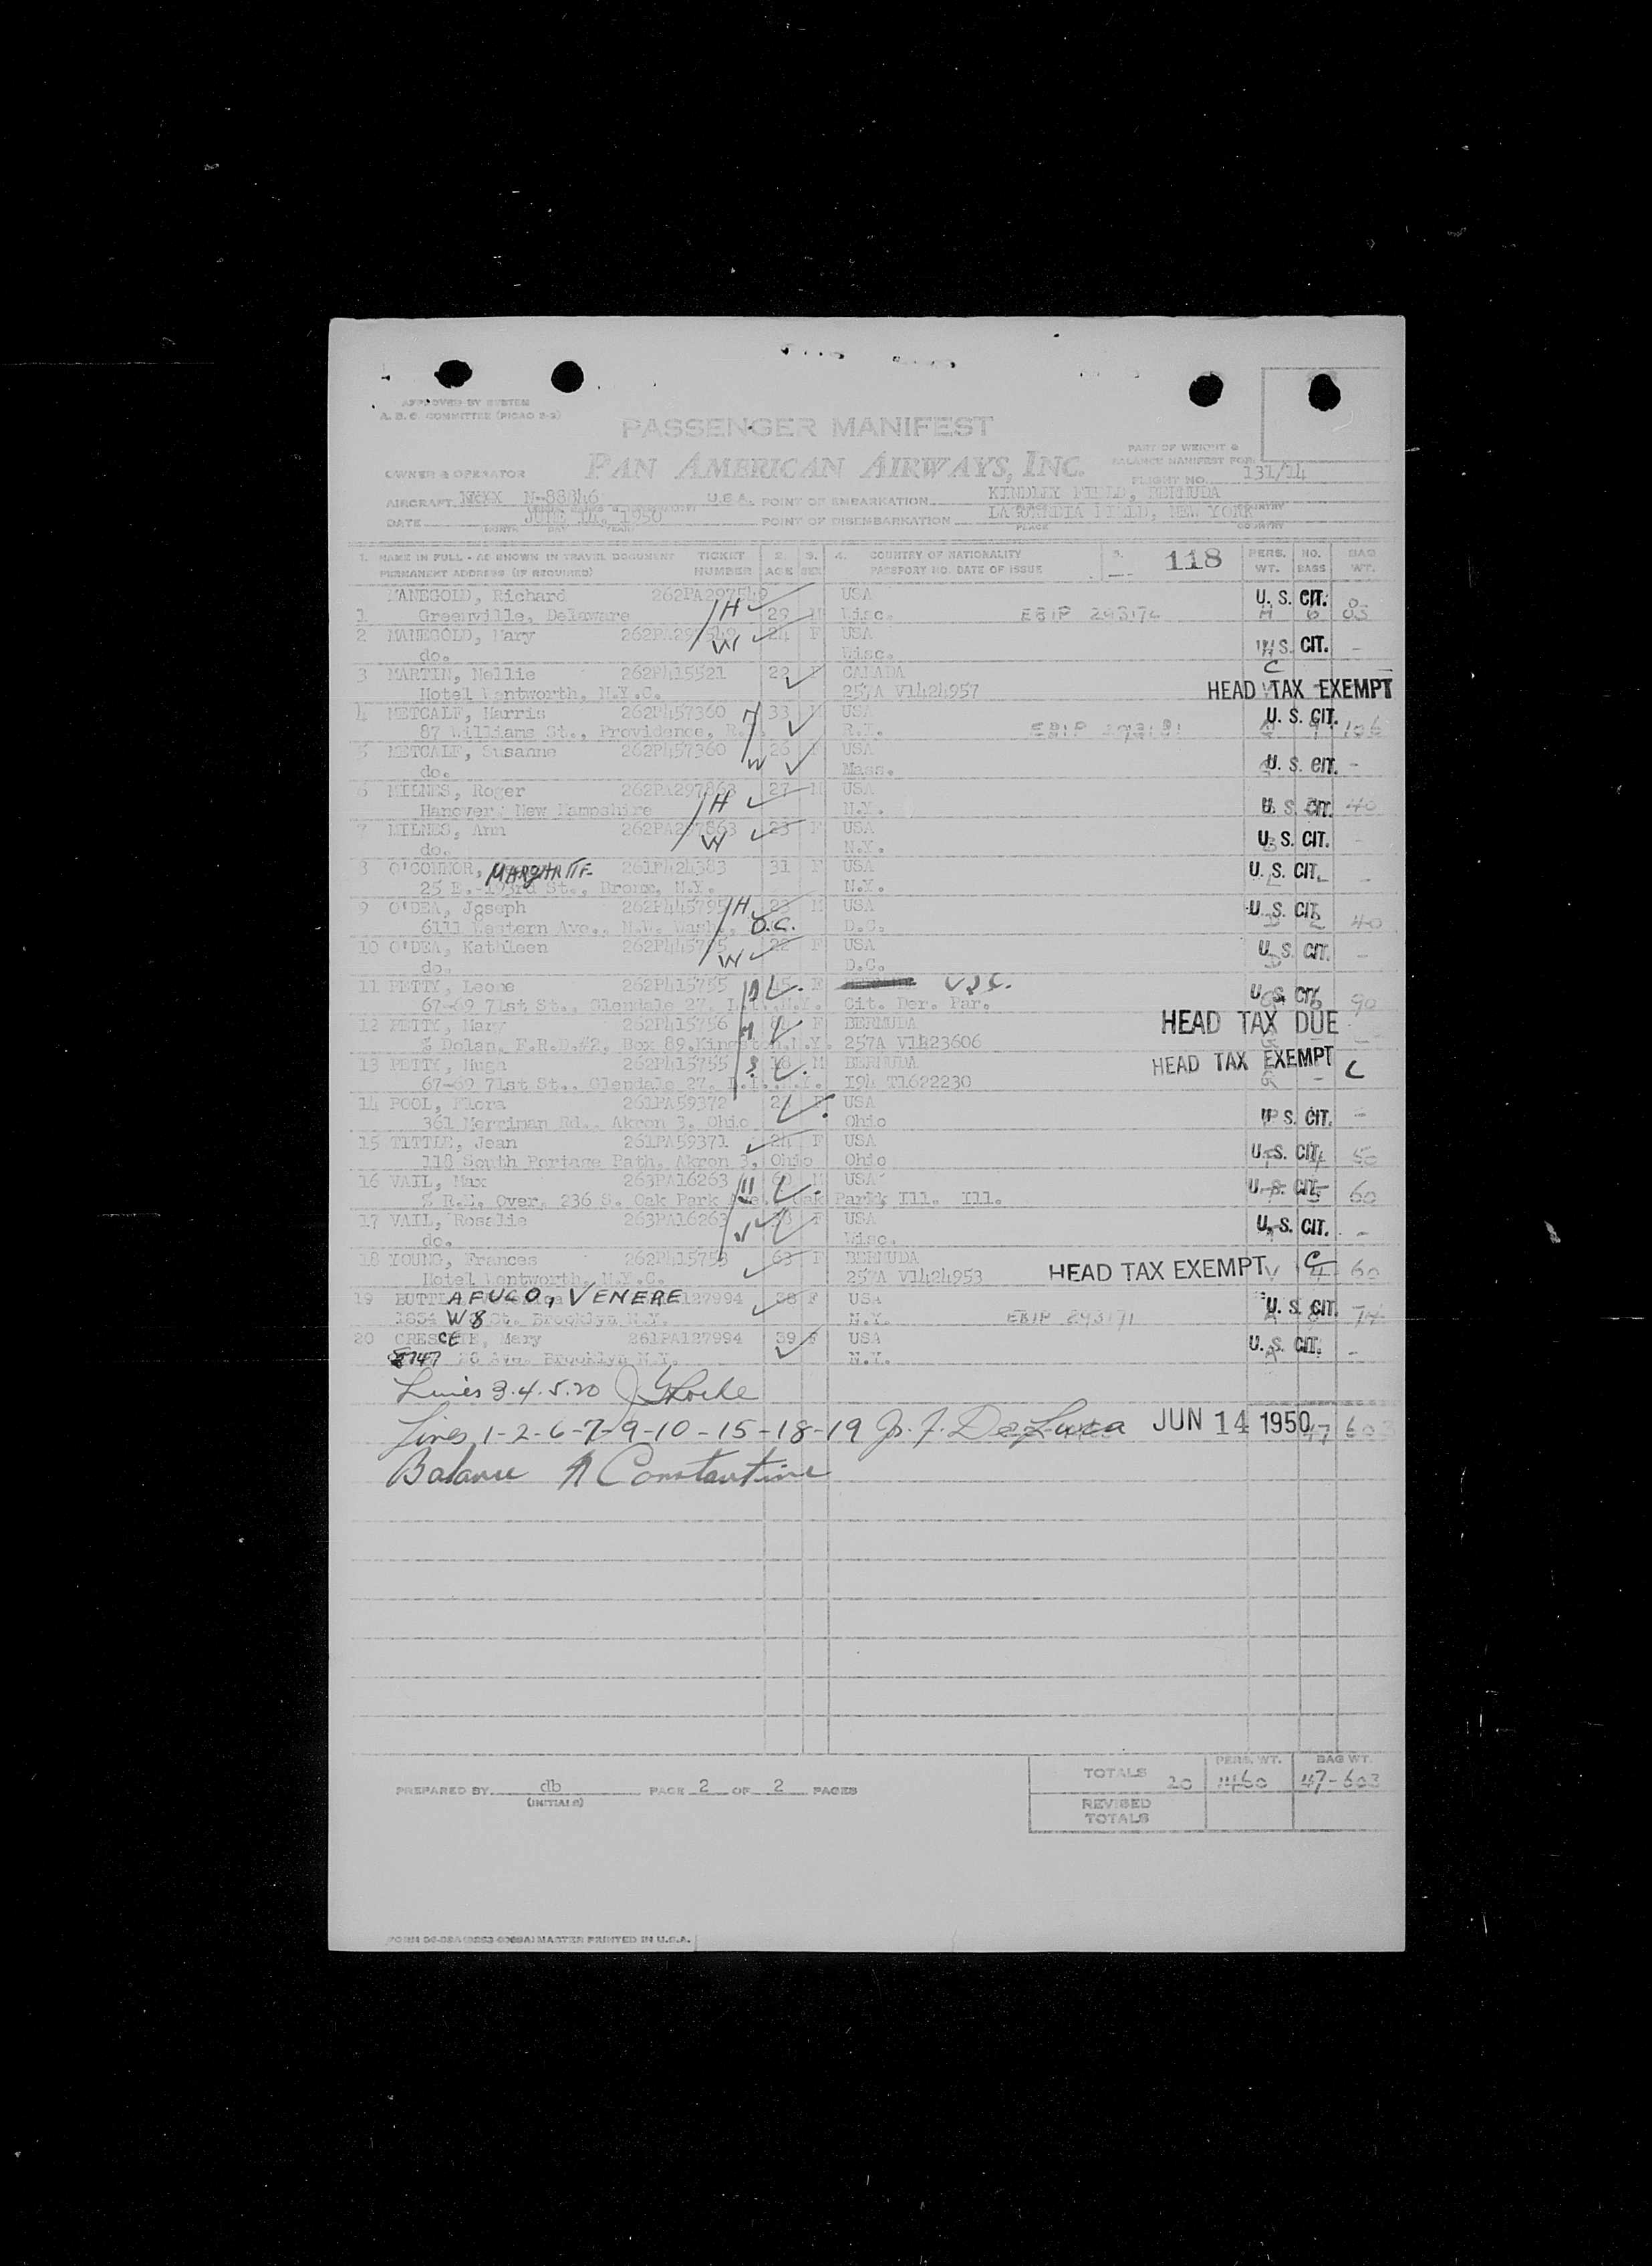 APPROVED BY SYSTEM
A. B. C COMMITTEE (PICAO 2-2)
PASSENGER MANIFEST
PART OF WEIGHT &
BALANCE MANIFEST FOR
OWNER & OPERATOR PAN AMERICAN AIRWAYS, INC.
FLIGHT NO. 131/14
AIRCRAFT N-88846 U.S.A. POINT OF EMBARKATION KINDLEY FIELD, BERMUDA
DATE JUNE 14, 1950 POINT OF DISEMBARKATION LAGUARDIA FIELD, NEW YORK
PLACE COUNTRY
1. NAME IN FULL - AS SHOWN IN TRAVEL DOCUMENT TICKET 2. 3. 4. COUNTRY OF NATIONALITY 5. 118 PERS. NO. BAG
PERMANENT ADDRESS (IF REQUIRED) NUMBER AGE SEX PASSPORT NO. DATE OF ISSUE WT. BAGS WT.
MANEGOLD, Richard 262PA297549 USA U. S. CIT.
1 Greenville, Delaware H 29 M Wisc. EBIP 293174
2 MANEGOLD, Mary 262PA297549 W 24 F USA
do. Wisc. S. CIT. -
3 MARTIN, Nellie 262P415521 22 F CANADA C
Hotel Wentworth, N.Y.C. 257A V1424957 HEAD TAX EXEMPT
4 METCALF, Harris 262P457360 H 33 M USA U. S. CIT.
87 Williams St., Providence, R.I. R.I. EBIP
5 METCALF, Susanne 262P457360 W 26 F USA
do. Mass. U. S. CIT. -
6 MILNES, Roger 262PA297863 H 27 M USA
Hanover New Hampshire N.Y. U. S. CIT. 40
7 MILNES, Ann 262PA297863 W 23 F USA
do. N.Y. U. S. CIT. -
8 O'CONNOR, 261P424383 31 F USA U. S. CIT.
25 E. 193rd St., Bronx, N.Y. N.Y. -
9 O'DEA, Joseph 262P445795 H 23 M USA U. S. CIT.
6111 Eastern Ave., N.W. Wash., D.C. D.C. 40
10 O'DEA, Kathleen 262P445795 W 22 F USA U. S. CIT.
do. D.C. -
11 PETTY, Leone 262P415755 45 F USC. U. S. CIT.
67-69 71st St., Glendale 27, L.I., N.Y. Cit. Der. Par. 90
12 PETTY, Mary 262P415756 F BERMUDA HEAD TAX DUE
% Dolan, F.R.D.#2, Box 89, Kingston, N.Y. 257A V1423606
13 PETTY, Hugh 262P415755 18 M BERMUDA HEAD TAX EXEMPT C
67-69 71st St., Glendale 27, L.I., N.Y. I94 T1622230
14 POOL, Flora 261PA59372 F USA
361 Merriman Rd., Akron 3, Ohio Ohio S. CIT. -
15 TITTLE, Jean 261PA59371 24 F USA
118 South Portage Path, Akron 3, Ohio Ohio U. S. CIT. 50
16 VAIL, Max 263PA16263 H M USA
% R.E. Over, 236 S. Oak Park Ave. Oak Park, Ill. Ill. U. S. CIT. 60
17 VAIL, Rosalie 263PA16263 W F USA
do. Wisc. U. S. CIT. -
18 YOUNG, Frances 262P415753 63 F BERMUDA C
Hotel Wentworth, N.Y.C. 257A V1424953 HEAD TAX EXEMPT 4 60
19 AFUCO, VENERE 127994 38 F USA
1834 W 8 St. Brooklyn N.Y. N.Y. EBIP 293171 U. S. CIT. 74
20 CRESCE, Mary 261PA127994 39 F USA
8747 Brooklyn N.Y. N.Y. U. S. CIT. -
Lines 3.4.5.20
Lines 1-2-6-7-9-10-15-18-19 De Luca JUN 14 1950 47 603
Balance A Constantine
TOTALS 20 PERS. WT. BAG WT. 47-603
PREPARED BY dlb (INITIALS) PAGE 2 OF 2 PAGES
REVISED
TOTALS
MASTER PRINTED IN U.S.A.